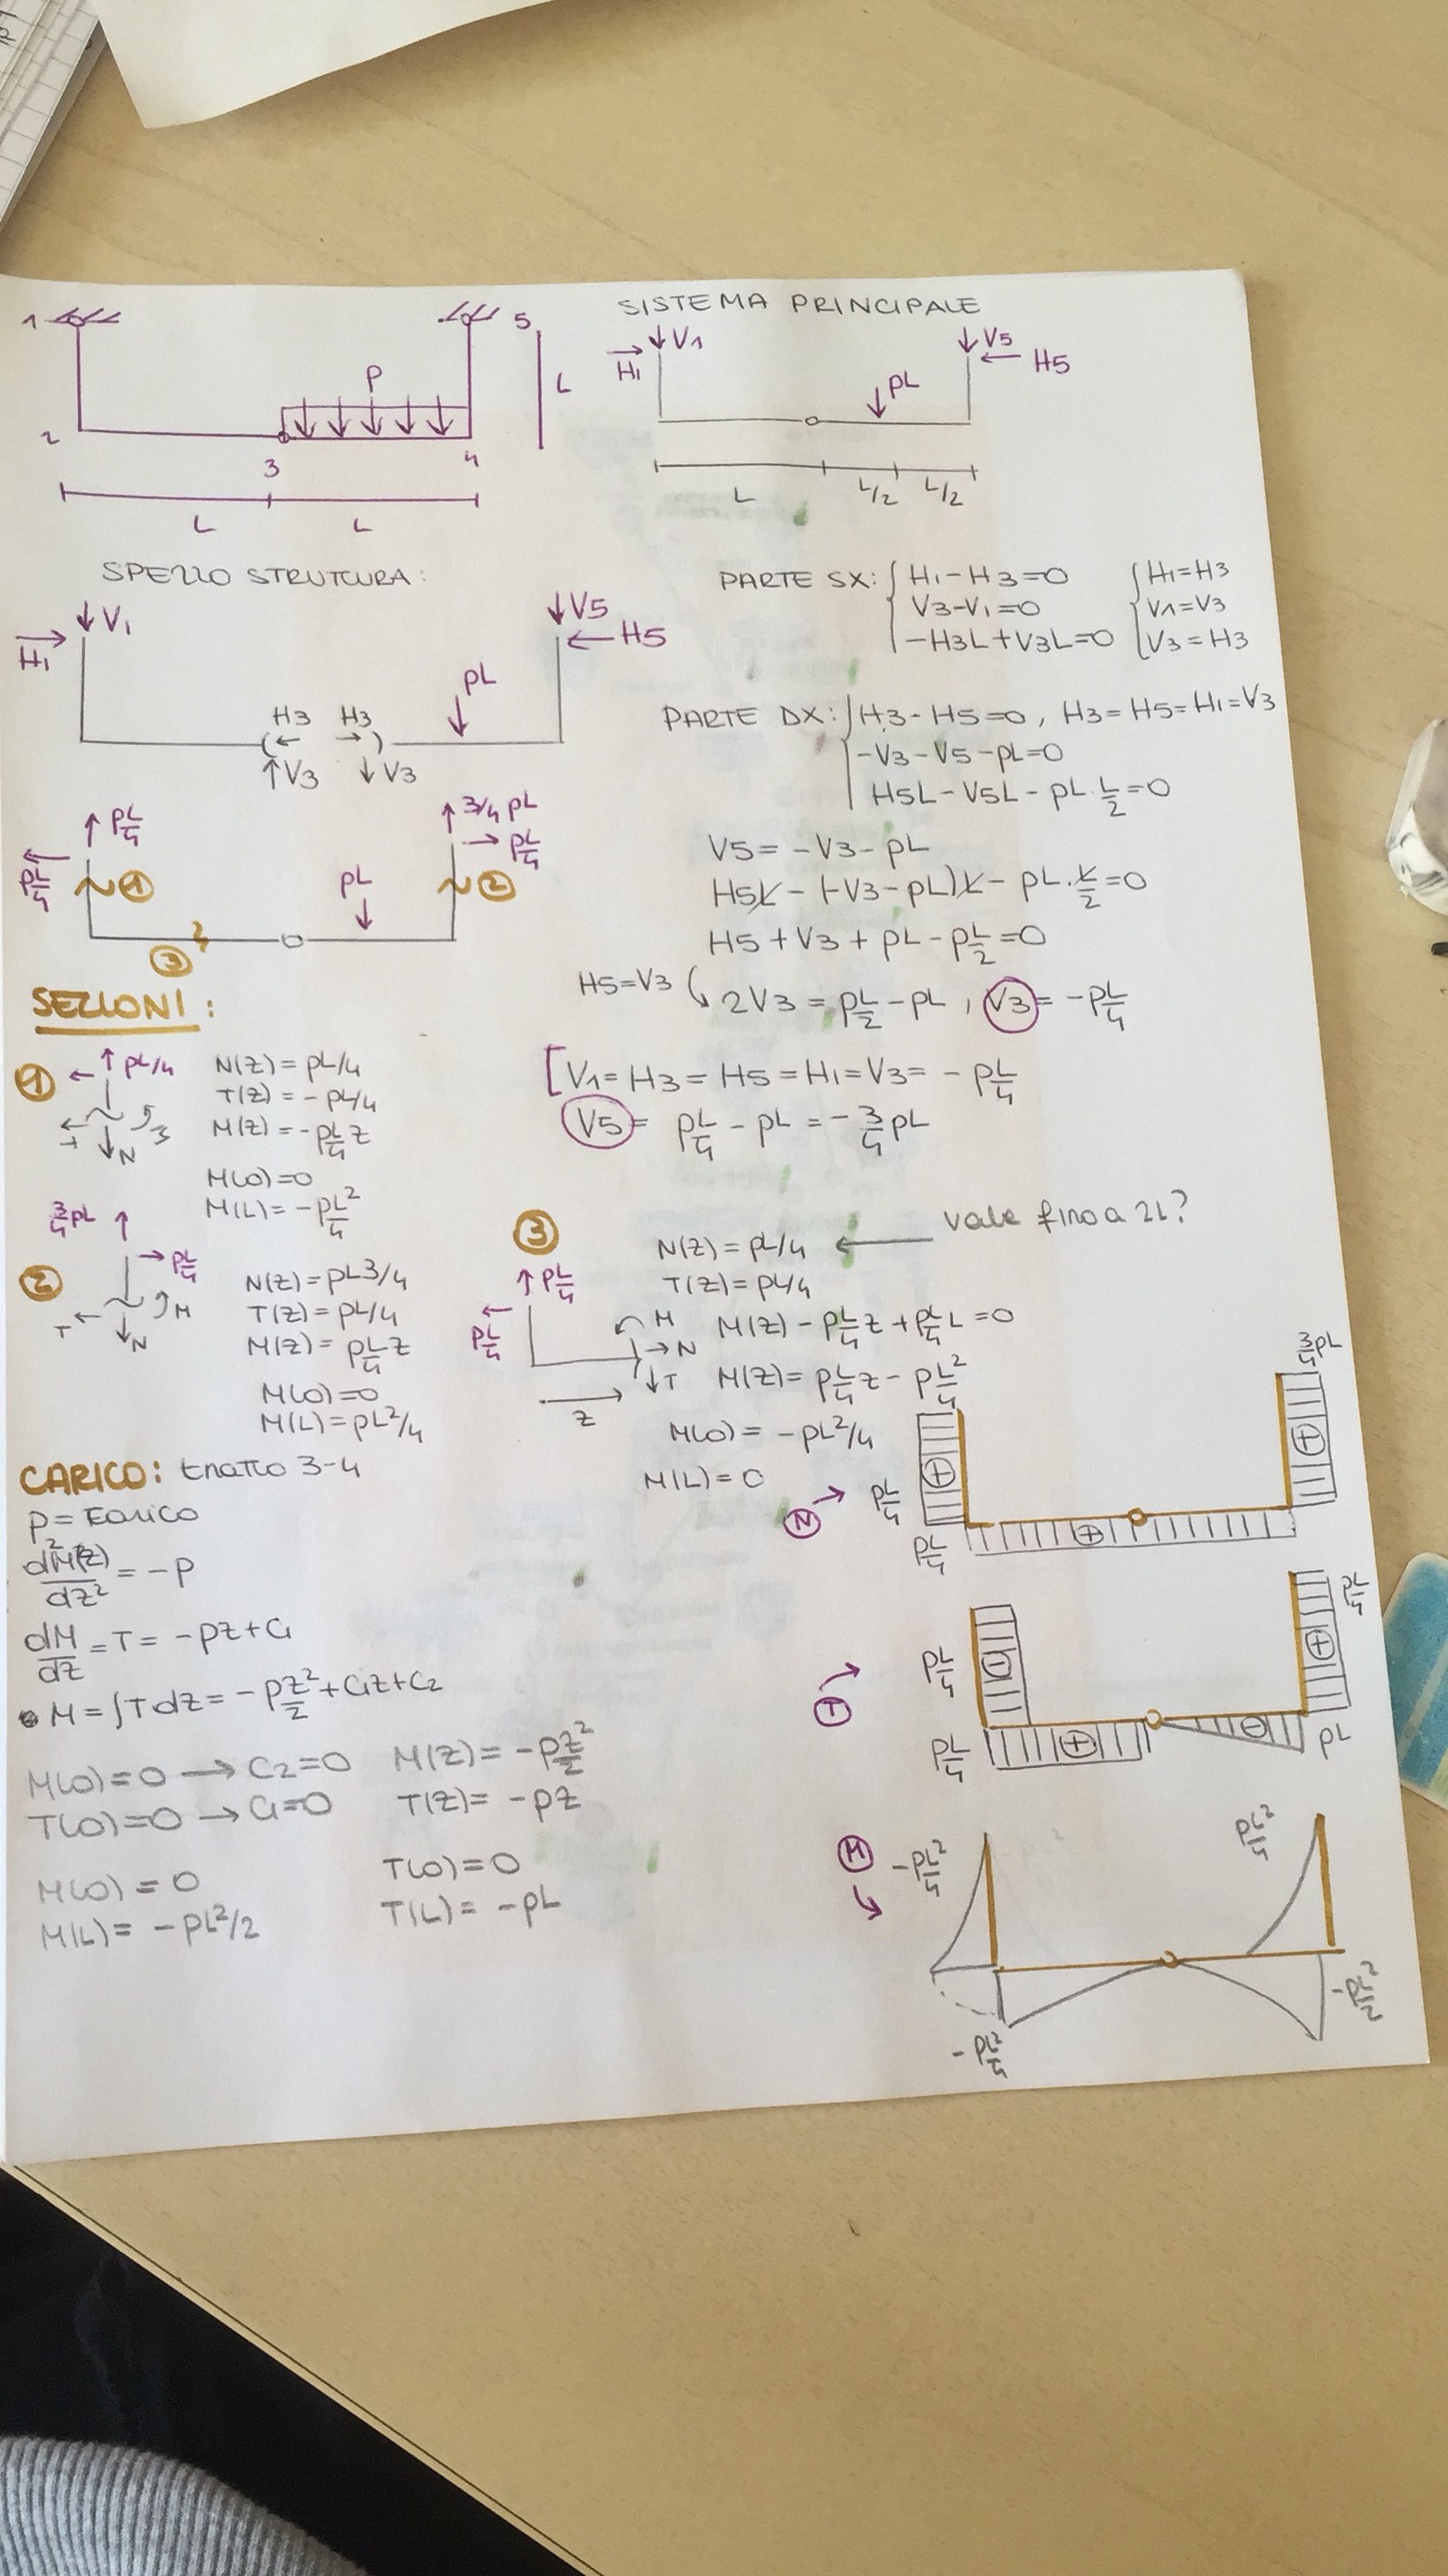 SISTEMA PRINCIPALE
1
5
P
L
2
3
4
L
L
V1
H1
V5
H5
pL
L
L/2
L/2
SPEZZO STRUTTURA:
V1
H1
V5
H5
pL
H3
H3
V3
V3
PARTE SX: { H1-H3=0
V3-V1=0
-H3L+V3L=0
{ H1=H3
V1=V3
V3=H3
PARTE DX: { H3-H5=0, H3=H5=H1=V3
-V3-V5-pL=0
H5L-V5L-pL·L/2=0
V5=-V3-pL
H5L-(-V3-pL)L-pL·L/2=0
H5+V3+pL-pL/2=0
H5=V3
2V3=pL/2-pL, V3=-pL/4
[V1=H3=H5=H1=V3=-pL/4
V5=pL/4-pL=-3/4pL
pL/4
pL/4
1
3/4 pL
pL/4
2
pL
3
SEZIONI:
1
pL/4
T
N
N(z)=pL/4
T(z)=-pL/4
M(z)=-pL/4z
M(0)=0
M(L)=-pL²/4
2
3/4pL
pL/4
M
T
N
N(z)=pL3/4
T(z)=pL/4
M(z)=pL/4z
M(0)=0
M(L)=pL²/4
3
pL/4
pL/4
M
N
T
z
vale fino a 2L?
N(z)=pL/4
T(z)=pL/4
M(z)-pL/4z+pL/4L=0
M(z)=pL/4z-pL²/4
M(0)=-pL²/4
M(L)=0
CARICO: tratto 3-4
p=carico
d²M(z)/dz²=-p
dM/dz=T=-pz+C1
M=∫Tdz=-pz²/2+C1z+C2
M(0)=0→C2=0 M(z)=-pz²/2
T(0)=0→C1=0 T(z)=-pz
M(0)=0 T(0)=0
M(L)=-pL²/2 T(L)=-pL
N
pL/4
pL/4
+
+
+
3/4pL
T
pL/4
pL/4
-
+
-
+
pL/4
pL
M
-pL²/4
-pL²/4
pL²/4
-pL²/2